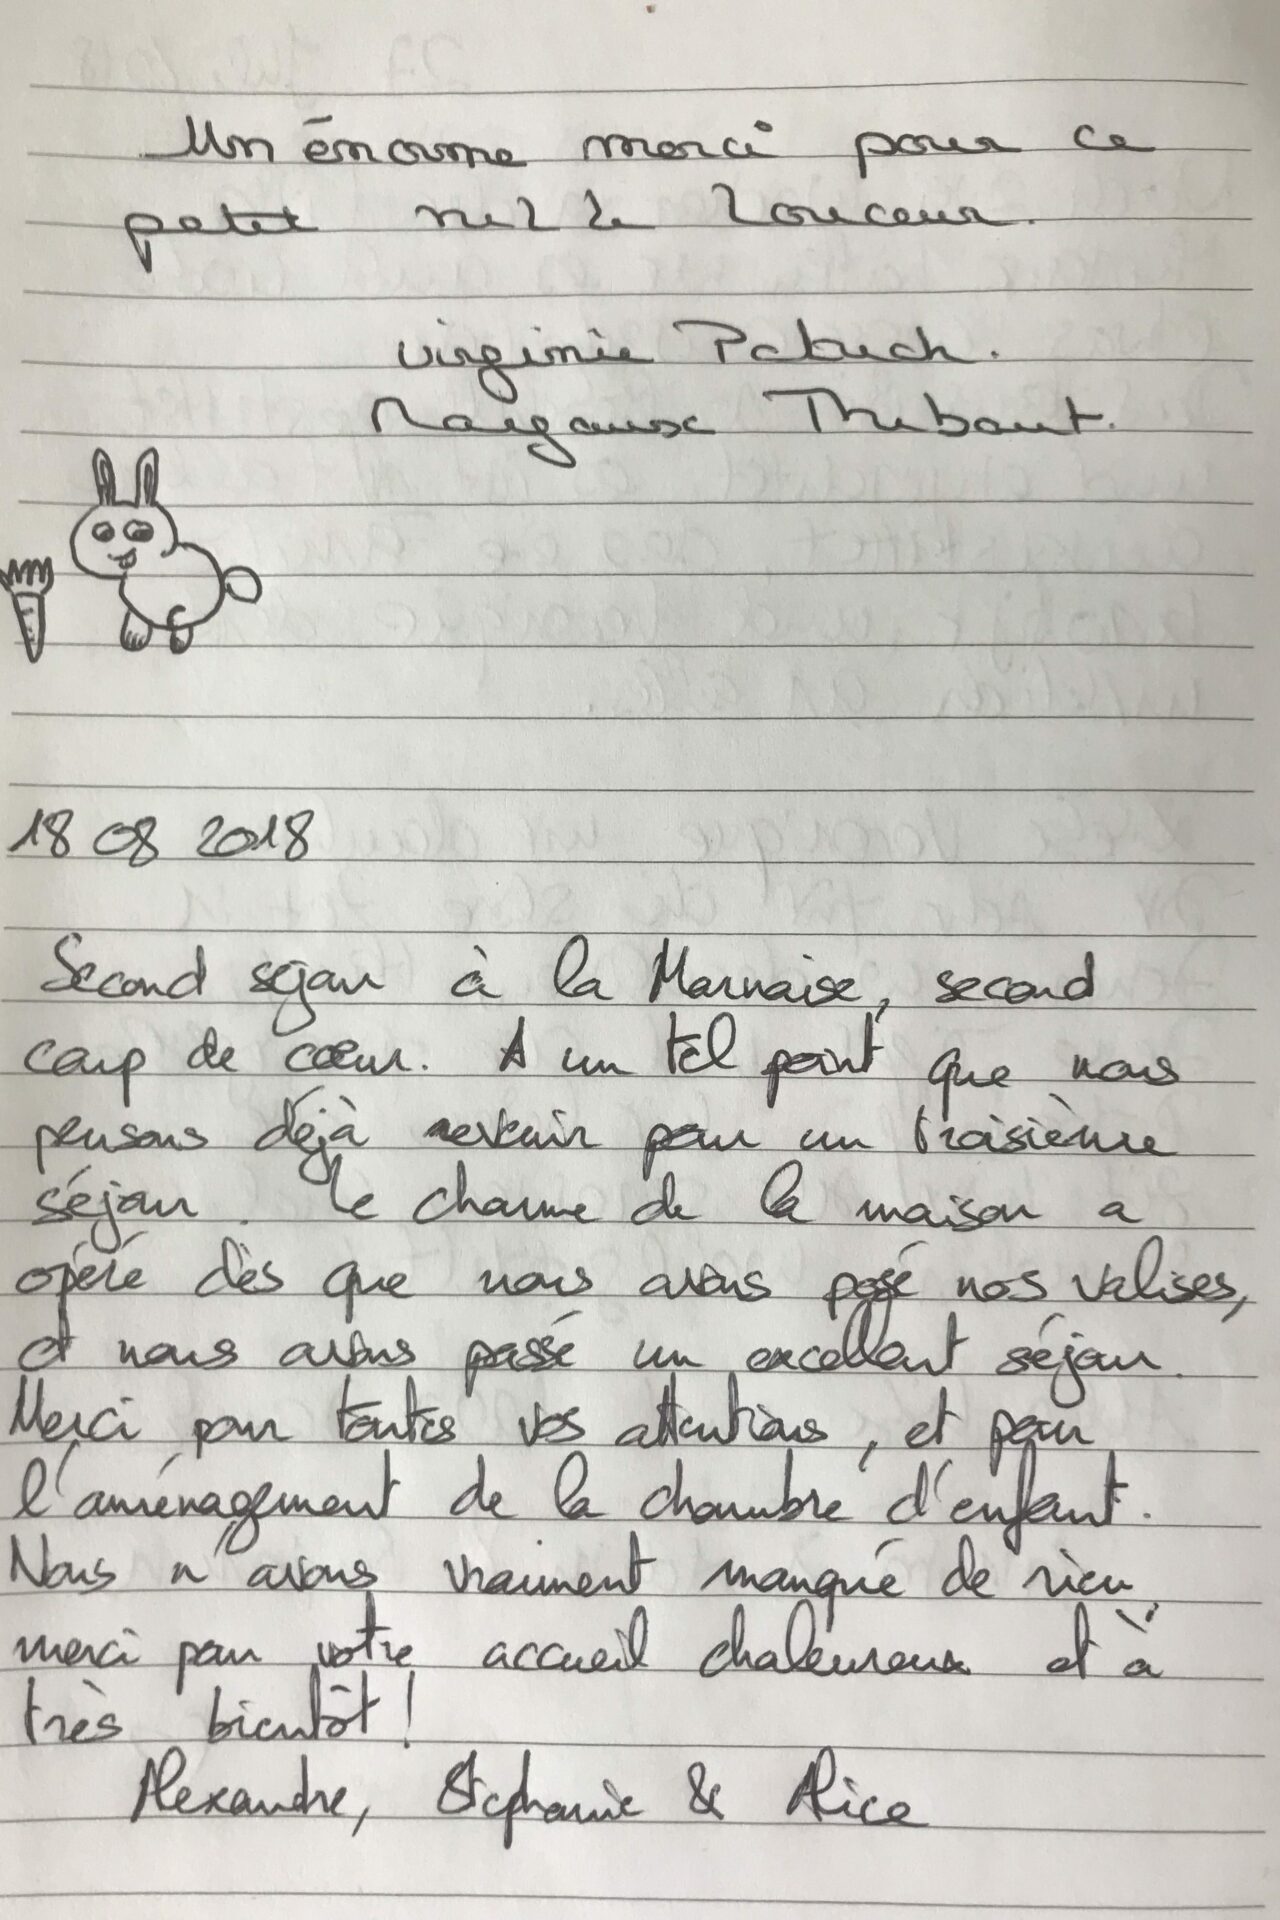 Un énorme merci pour ce
petit nid de douceur.
Virginie
Margaux Thibaut.
18 08 2018
Second séjour à la Marnaise, second
coup de cœur. A un tel point que nous
pensons déjà revenir pour un troisième
séjour. Le charme de la maison a
opéré dès que nous avons posé nos valises,
et nous avons passé un excellent séjour.
Merci pour toutes vos attentions, et pour
l'aménagement de la chambre d'enfant.
Nous n'avons vraiment manqué de rien,
merci pour votre accueil chaleureux et à
très bientôt !
Alexandre, Stéphanie & Alice